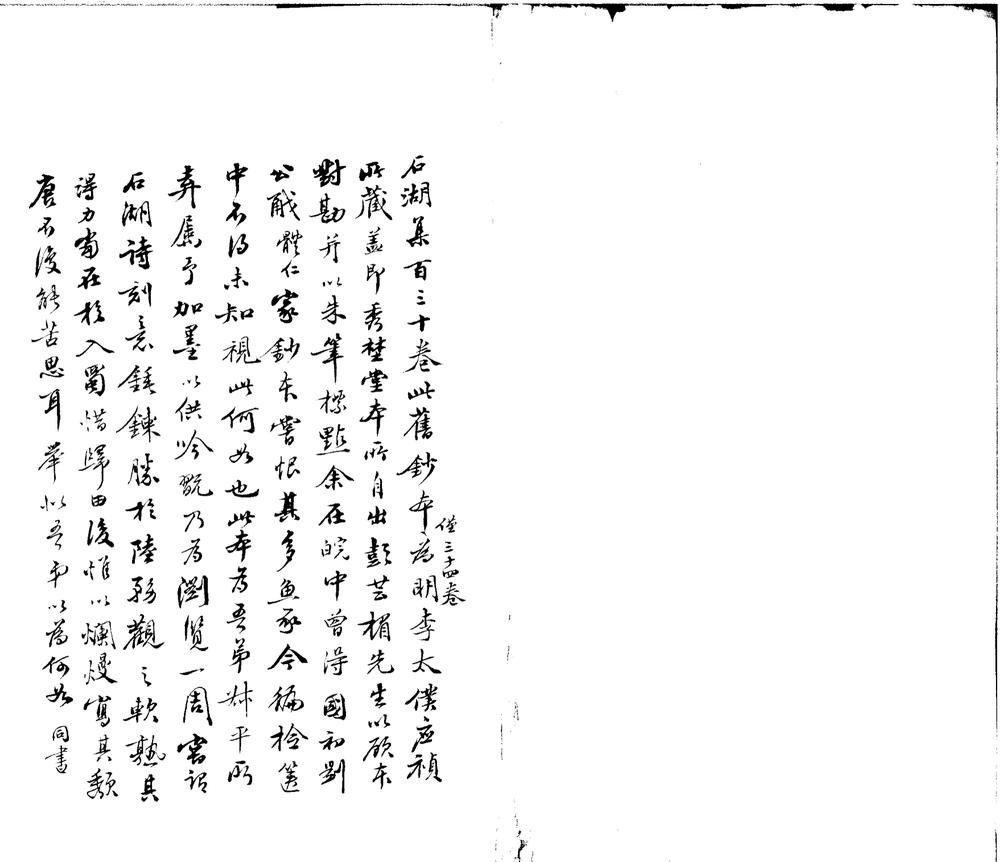 石湖集百三十卷此舊鈔本僅三十四卷為明李太僕應禎
所藏蓋即秀埜堂本所自出彭芸楣先生以顧本
對勘并以朱筆標點余在皖中曾得國初劉
公㦷體仁家鈔本嘗恨其多魚豕今徧檢篋
中不得未知視此何如也此本為吾弟叔平所
弆屬予加墨以供吟翫乃為瀏覽一周嘗謂
石湖詩刻意錘鍊勝於陸務觀之軟熟其
得力當在於入蜀惜歸田後惟以爛熳寫其頹
唐不復能苦思耳舉似吾弟以為何如 同書